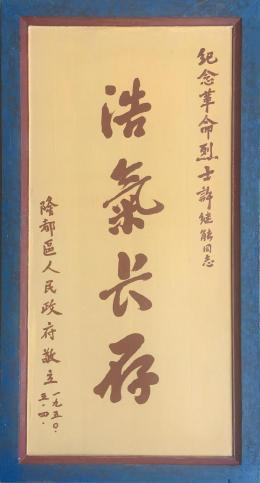 纪念革命烈士許继能同志
浩氣长存
隆都區人民政府敬立
一九五〇.
五.四.